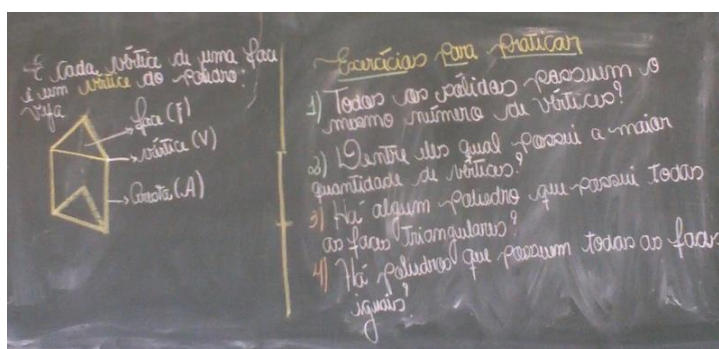 E cada vértice de uma face
é um vértice do poliedro:
veja
face (F)
vértice (V)
Aresta (A)
Exercícios para praticar
1) Todos os sólidos possuem o
mesmo número de vértices?
2) Dentre eles qual possui a maior
quantidade de vértices?
3) Há algum poliedro que possui todas
as faces triangulares?
4) Há poliedros que possuem todas as faces
iguais?